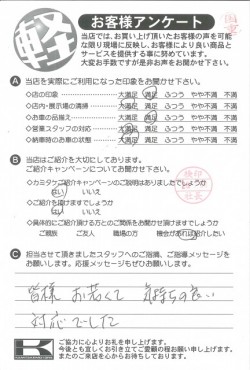 軽
お客様アンケート
当店では、お買い上げ頂いたお客様の声を可能
な限り現場に反映し、お客様により良い商品と
サービスを提供する事に努めています。
大変お手数ですが是非お声をお聞かせ下さい。
A 当店を実際にご利用になった印象をお聞かせ下さい。
◇店の印象 大満足 満足 ふつう やや不満 不満
◇店内・展示場の清掃 大満足 満足 ふつう やや不満 不満
◇お車の品揃え 大満足 満足 ふつう やや不満 不満
◇営業スタッフの対応 大満足 満足 ふつう やや不満 不満
◇納車時のお車の状態 大満足 満足 ふつう やや不満 不満
B 当店はご紹介を大切にしております。
ご紹介キャンペーンについてお聞かせ下さい。
◇カミタケご紹介キャンペーンのご説明はありましたでしょうか
はい いいえ
◇ご紹介を頂けますでしょうか
はい いいえ
◇具体的にご紹介頂ける方とのご関係をお聞かせ頂けますでしょうか
ご親族 ご友人 職場の方 機会があれば紹介したい
検印
社長
C 担当させて頂きましたスタッフへのご指導、ご指導メッセージを
お願いします。応援メッセージもぜひお願いします。
皆様 お若くて 気持ちの良い
対応でした
K
ご協力に心よりお礼を申し上げます。
今後とも宜しくお引き立てご愛顧の程お願い申し上げます。
またのご来店を心からお待ちしております。